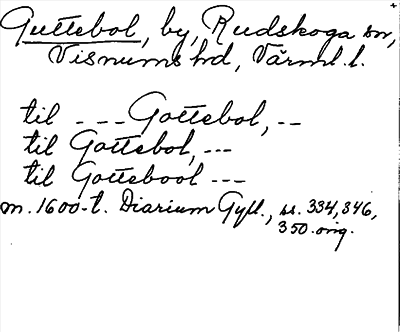 Guttebol, by, Rudskoga sn,
Visnums hd, Värml. l.
til - - - Gottebol, - -
til Gottebol, - - -
til Gottebool - - -
m. 1600-t. Diarium Gyll., ss. 334, 346,
350. orig.